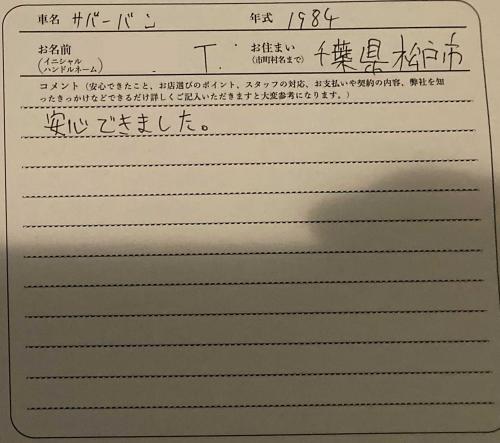 車名 サバーバン 年式 1984
お名前 (イニシャル ハンドルネーム) T. お住まい (市町村名まで) 千葉県松戸市
コメント（安心できたこと、お店選びのポイント、スタッフの対応、お支払いや契約の内容、弊社を知
ったきっかけなどできるだけ詳しくご記入いただきますと大変参考になります。）
安心できました。